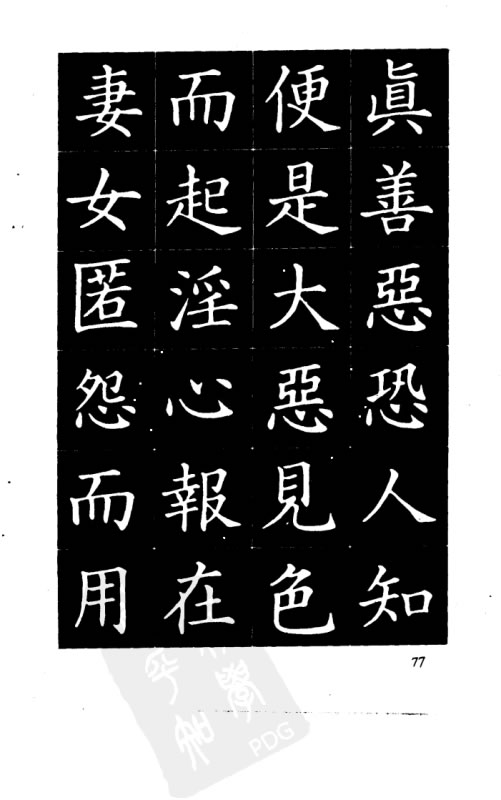 眞善惡恐人知
便是大惡見色
而起淫心報在
妻女匿怨而用
77
PDG